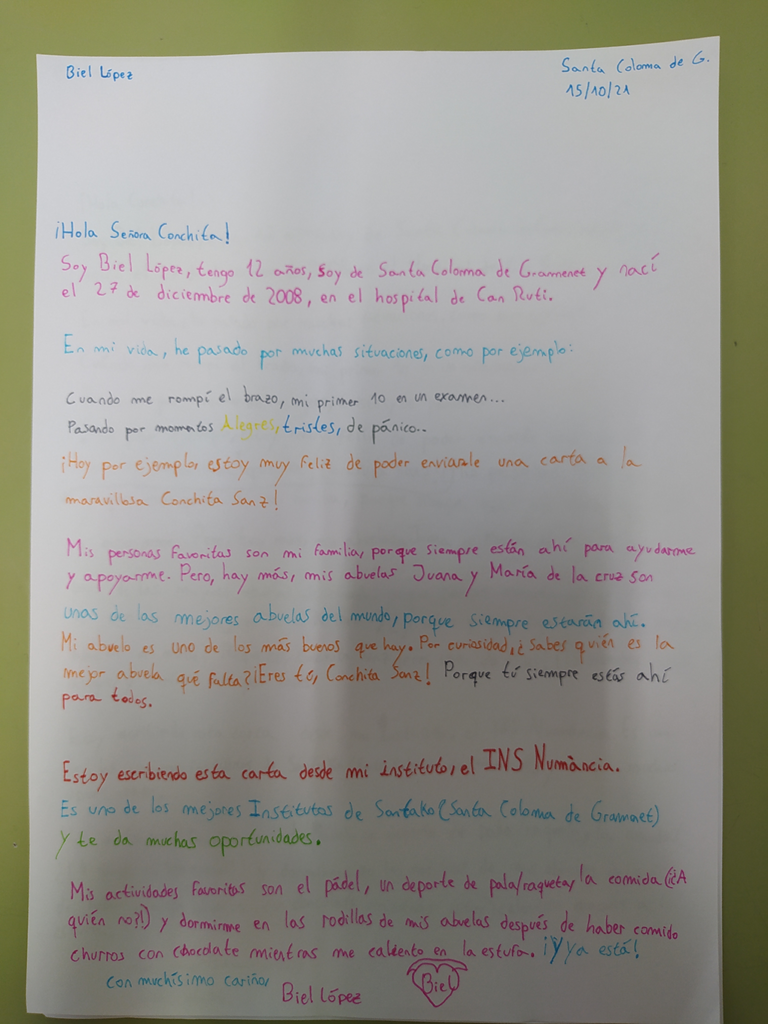 Biel López
Santa Coloma de G.
15/10/21
¡Hola Señora Conchita!
Soy Biel López, tengo 12 años, soy de Santa Coloma de Gramenet y nací
el 27 de diciembre de 2008, en el hospital de Can Ruti.
En mi vida, he pasado por muchas situaciones, como por ejemplo:
Cuando me rompí el brazo, mi primer 10 en un examen...
Pasando por momentos Alegres, tristes, de pánico..
¡Hoy por ejemplo, estoy muy feliz de poder enviarle una carta a la
maravillosa Conchita Sanz!
Mis personas favoritas son mi familia, porque siempre están ahí para ayudarme
y apoyarme. Pero, hay más, mis abuelas Juana y María de la cruz son
unas de las mejores abuelas del mundo, porque siempre estarán ahí.
Mi abuelo es uno de los más buenos que hay. Por curiosidad, ¿Sabes quién es la
mejor abuela qué falta? ¡Eres tú, Conchita Sanz! Porque tú siempre estás ahí
para todos.
Estoy escribiendo esta carta desde mi instituto, el INS Numància.
Es uno de los mejores Institutos de Santako (Santa Coloma de Gramanet)
Y te da muchas oportunidades.
Mis actividades favoritas son el pádel, un deporte de pala/raqueta, la comida (¿¡A
quién no?!) y dormirme en las rodillas de mis abuelas después de haber comido
churros con chocolate mientras me caliento en la estufa. ¡Y ya está!
con muchísimo cariño,
Biel López
Biel